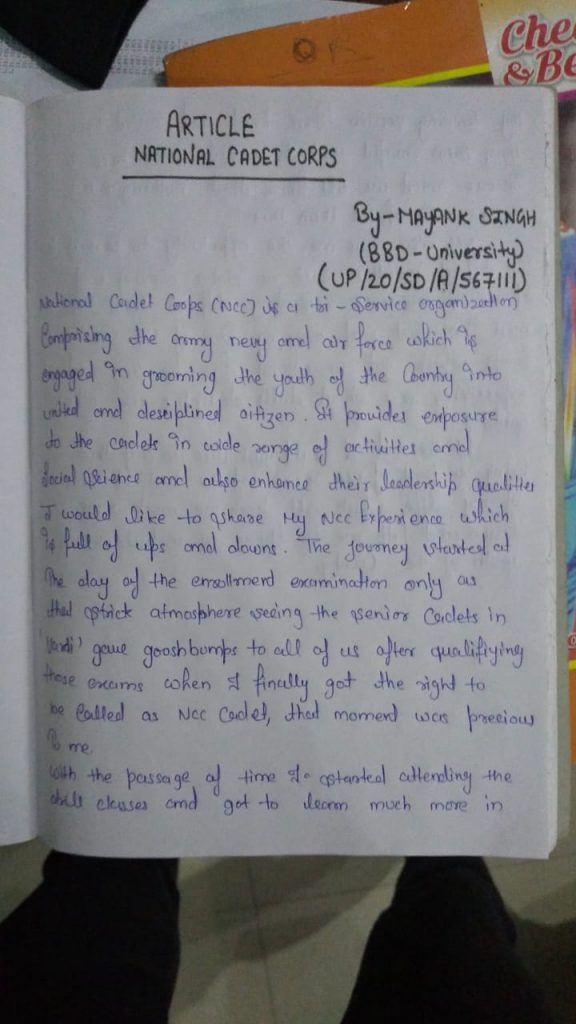 OR
Che
& Be
ARTICLE
NATIONAL CADET CORPS
By-MAYANK SINGH
(BBD-University)
(UP/20/SD/A/567111)
National Cadet Coops (NCC) is a tri-service organization
Comprising the army nevy and air force which is
engaged in grooming the youth of the Country into
united and desiplined citizen. It provides exposure
to the cadets in wide range of activities and
Social Science and also enhance their leadership qualities
I would like to share My NCC Experience which
is full of ups and downs. The journey started at
the day of the enrollment examination only as
that strick atmosphere seeing the senior Cadets in
'Vardi' gave gooshbumps to all of us after qualifiying
those exams when I finally got the right to
be Called as NCC Cadet, that moment was precious
to me.
With the passage of time I started attending the
drill classes and got to learn much more in